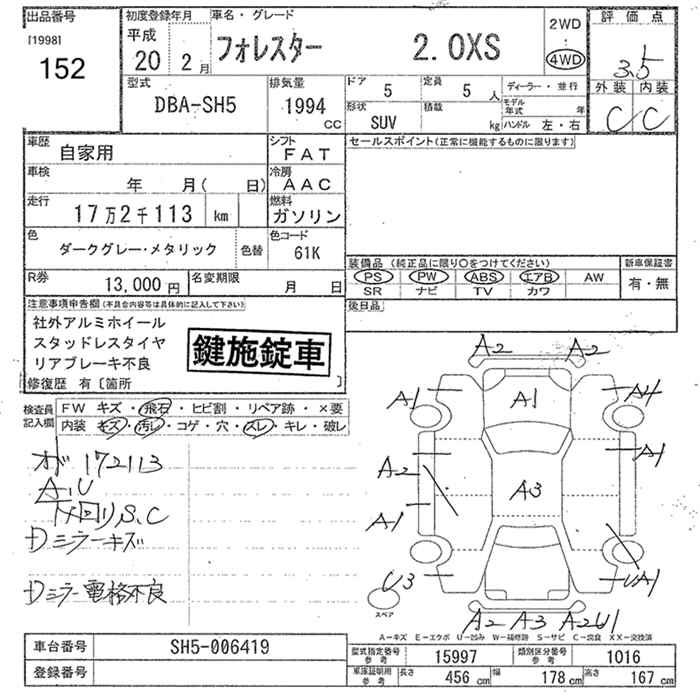 出品番号 初度登録年月 車名・グレード 評価点
[1998] 平成 2WD
152 20 2月 フォレスター 2.0XS ・ 4WD 3.5
型式 排気量 ドア 5 定員 5人 ディーラー・並行 外装 内装
DBA-SH5 1994 CC 形状 SUV 積載 kg モデル年式 年 C C
ハンドル 左・右
車歴 自家用 シフト FAT セールスポイント(正常に機能するものに限ります)
車検 年 月( 日) 冷房 AAC
走行 17万2千113 km 燃料 ガソリン
色 ダークグレー・メタリック 色替 色コード 61K
装備品 (純正品に限り○をつけてください) 新車保証書
R券 13,000円 名変期限 月 日 PS PW ABS エアB AW 有・無
SR ナビ TV カワ
注意事項申告欄(不具合内容等は具体的に記入して下さい) 後日品
社外アルミホイール
スタッドレスタイヤ
リアブレーキ不良
鍵施錠車
修復歴 有〔箇所 〕
検査員記入欄 FW キズ・飛石・ヒビ割・リペア跡・×要
内装 キズ・汚レ・コゲ・穴・スレ・キレ・破レ
A2 A2
A1 A1 A4
A2 A1
A3
A1
U3 UA1
A2 A3 A2U1
スペア
172113
A、U
下回りS、C
Dミラーキズ
Dミラー電格不良
A-キズ E-エクボ U-凹み W-補修跡 S-サビ C-腐食 XX-交換済
車台番号 SH5-006419 型式指定番号 参考 15997 類別区分番号 参考 1016
登録番号 車庫証明用 参考 長さ 456cm 幅 178cm 高さ 167cm